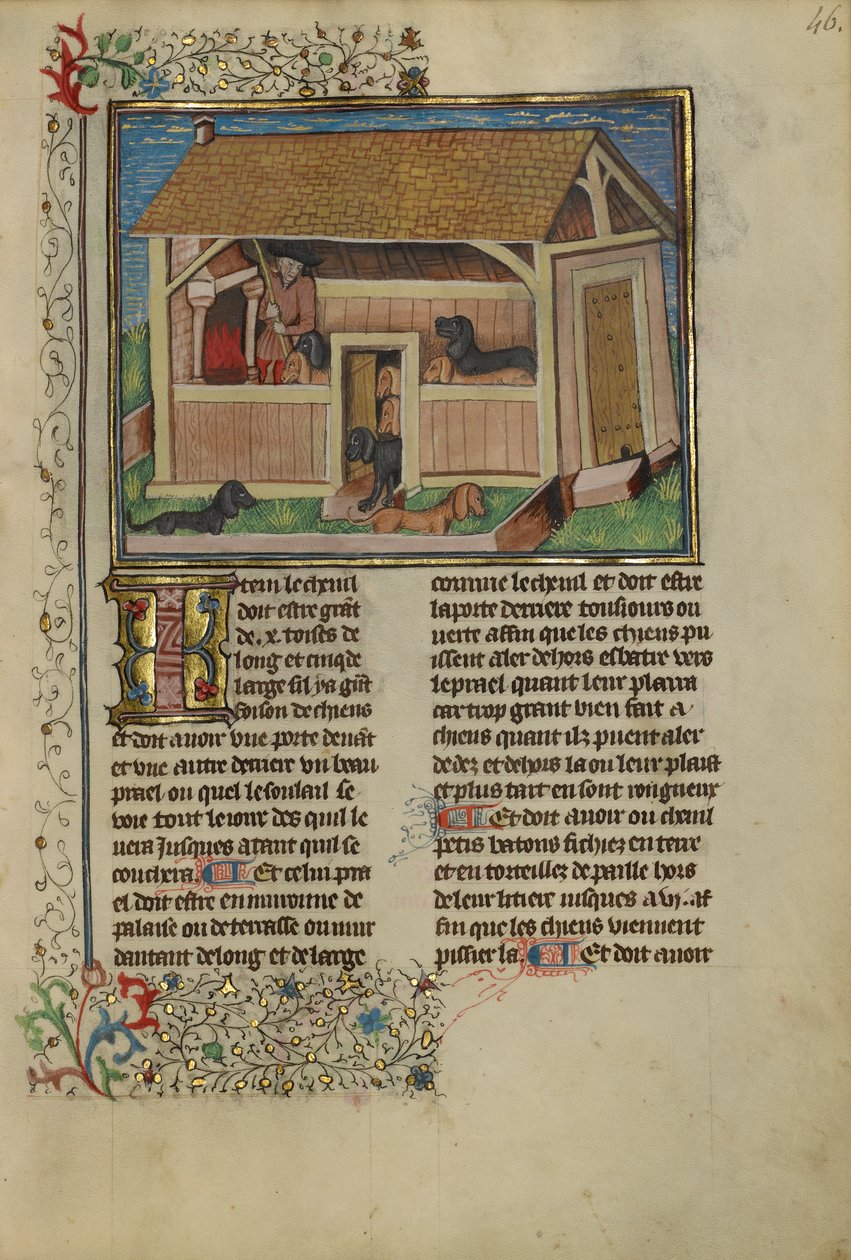 46.
Item le chenil
doit estre grãt
de .x. toises de
long et cinq de
large sil ya grãt
foison de chiens
et doit auoir vne porte deuãt
et vne autre derriere vn beau
prael ou quel le soulail se
voie tout le iour des quil le
uera Jusques atant quil se
couchera. Et celui pra
el doit estre enuironne de
palaise ou de terrasse ou mur
dautant de long et de large
comme le chenil et doit estre
la porte derriere tousiours ou
uerte affin que les chiens pu
issent aler dehors esbatre vers
le prael quant leur plaira
car trop grant bien fait a
chiens quant ilz puent aler
dedez et dehors la ou leur plaist
et plus tart en sont rongneux
Et doit auoir ou chenil
petis batons fichiez en terre
et entorteillez de paille hors
de leur litiere iusques a vj. af
fin que les chiens viennent
pissier la. Et doit auoir